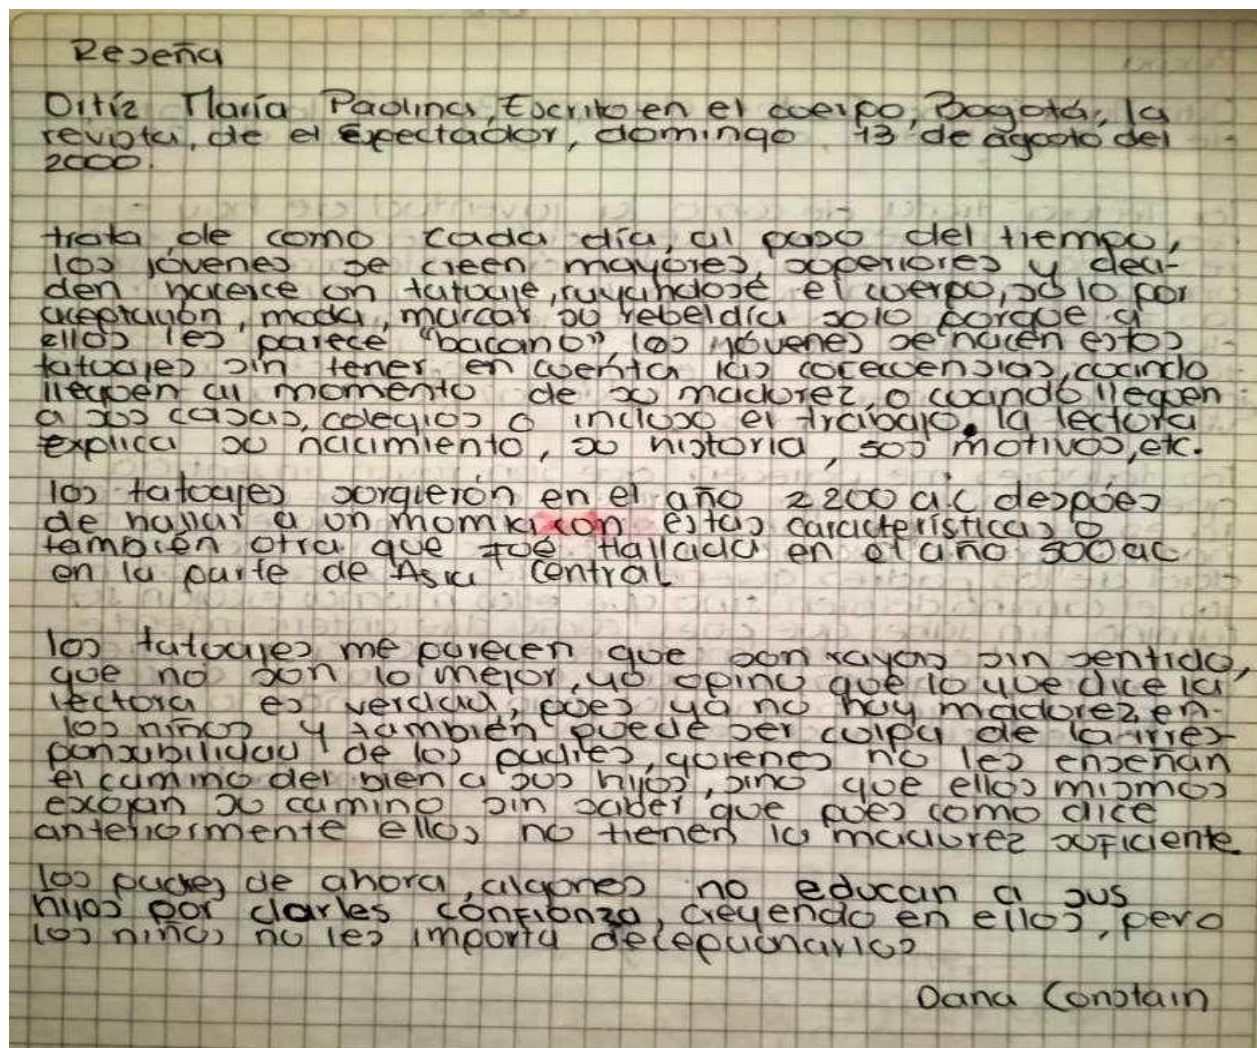 Reseña
Ortíz María Paulina, Escrito en el cuerpo, Bogotá, la
revista, de el Espectador, domingo 13 de agosto del
2000.
trata de como cada día, al paso del tiempo,
los jóvenes se creen mayores, superiores y deci-
den hacerce un tatuaje, rayandose el cuerpo, solo por
aceptación, moda, marcar su rebeldía solo porque a
ellos les parece "bacano", los jóvenes se hacen estos
tatuajes sin tener en cuenta las cosecuensias, cuando
lleguen al momento de su madurez, o cuando lleguen
a sus casas, colegios o incluso el trabajo. la lectora
explica su nacimiento, su historia, sus motivos, etc.
los tatuajes surgierón en el año 2200 a.c después
de hallar a un momia con estas características o
también otra que fue Hallada en el año 500 ac
en la parte de Asia Central
los tatuajes me parecen que son rayons sin sentido,
que no son lo mejor, yo opino que lo que dice la
lectora es verdad, pues ya no hay madurez en
los niños y también puede ser culpa de la irres-
ponsibilidad de los padres, quienes no les enseñan
el camino del bien a sus hijos, sino que ellos mismos
escojan su camino sin saber que pues como dice
anteriormente ellos no tienen la madurez suficiente
los padres de ahora, algunos no educan a sus
hijos por darles confianza, creyendo en ellos, pero
los niños no les importa decepcionarlos
Dana Constain